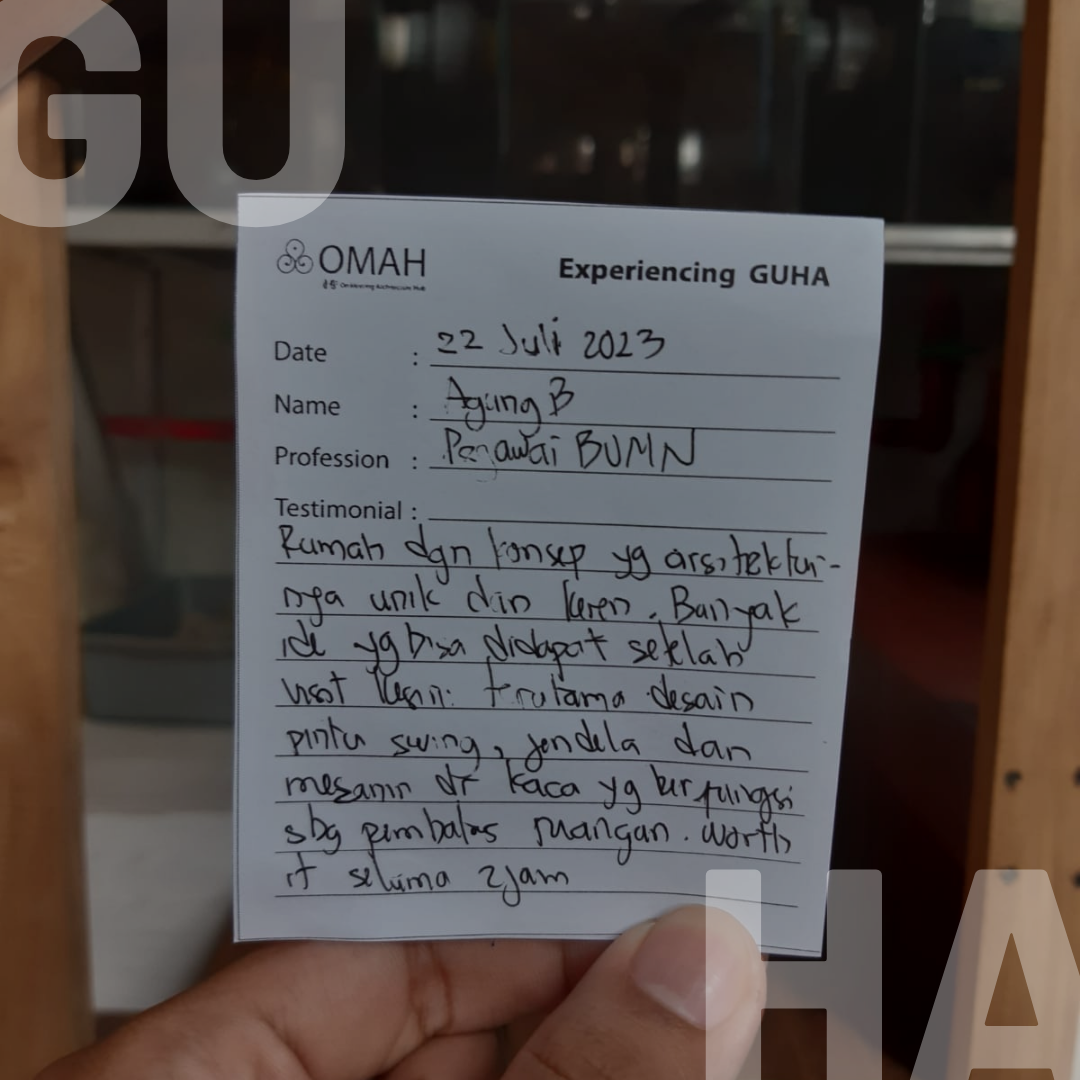 GU
OMAH
Experiencing GUHA
Date : 22 Juli 2023
Name : Agung B
Profession : Pegawai BUMN
Testimonial :
Rumah dgn konsep yg arsitektur-
nya unik dan keren. Banyak
ide yg bisa didapat setelah
visit kesini. trutama desain
pintu swing, jendela dan
mesanin dr kaca yg berfungsi
sbg pembatas ruangan. worth
it selama 2 jam
HA